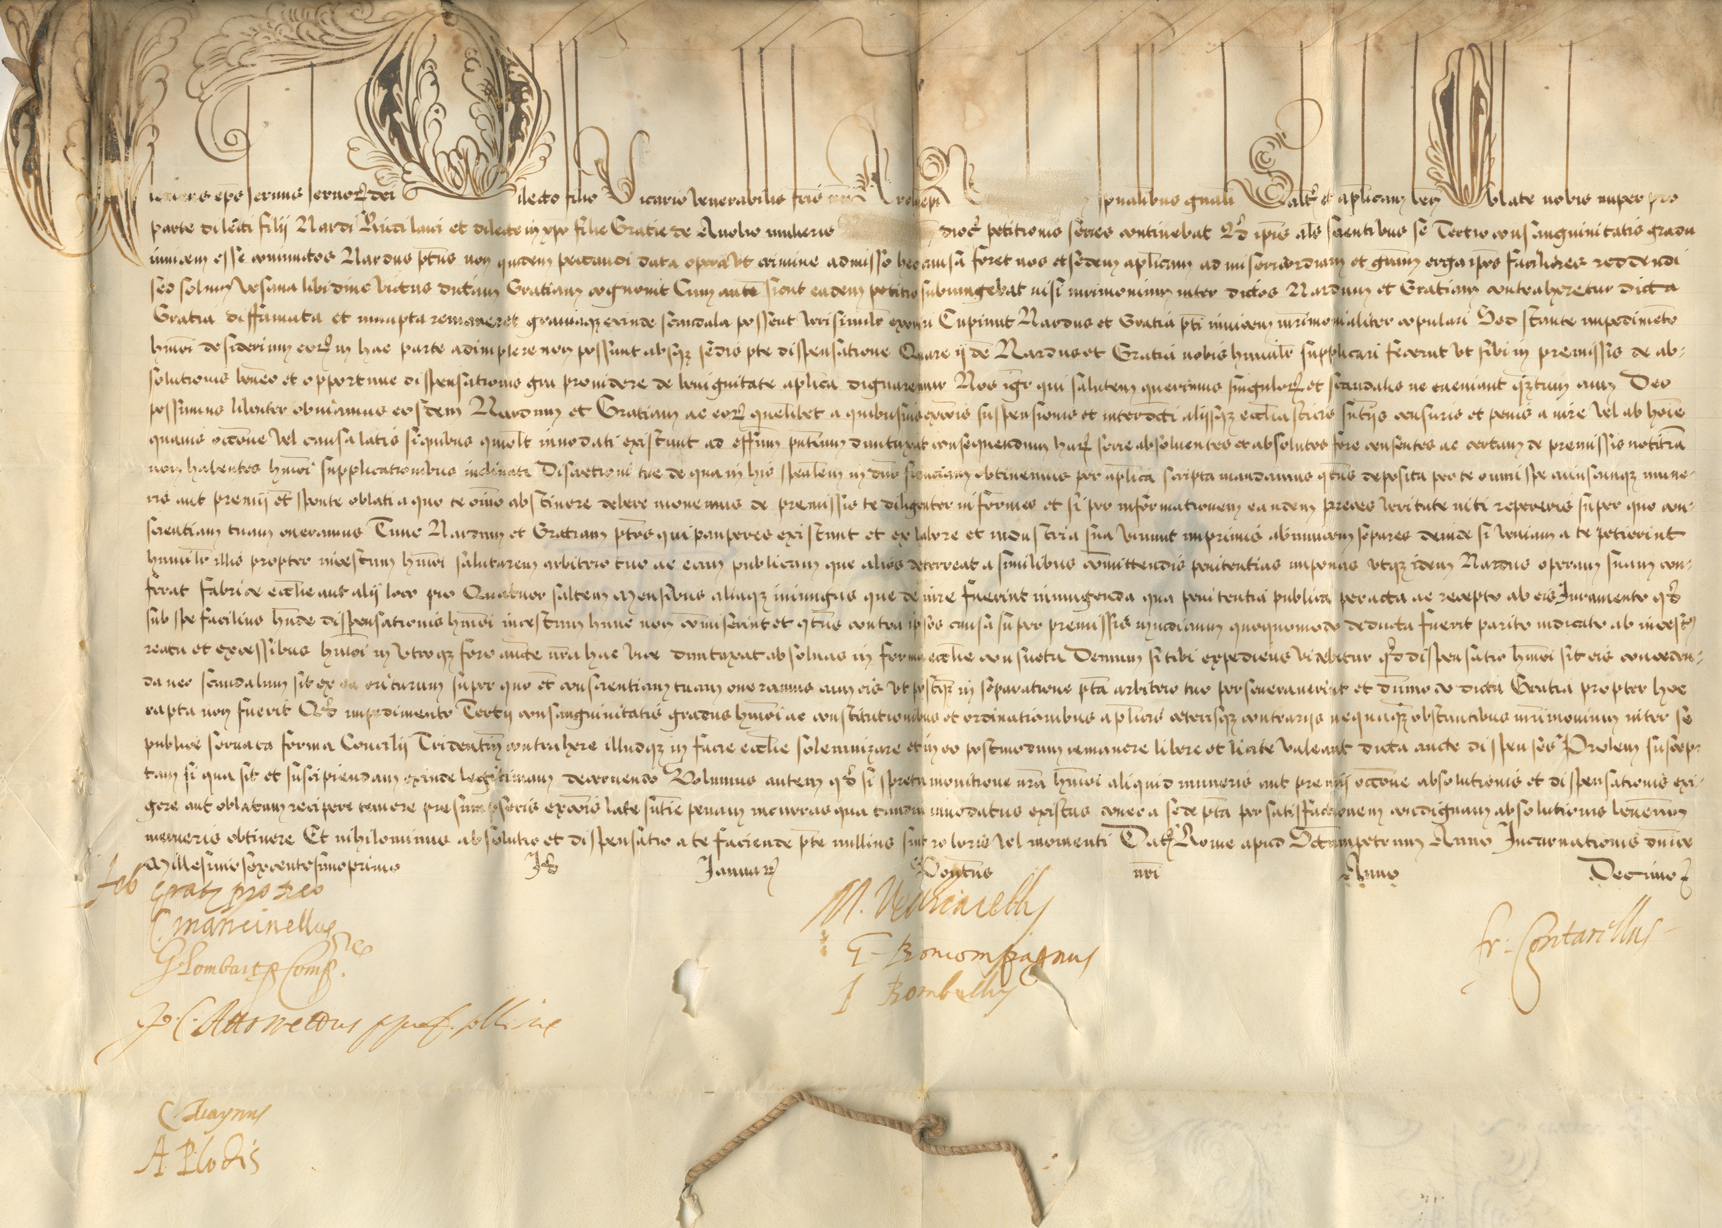 epus servus servor dei ilecto filio Vicario Venerabilis fris spualibus gnali Saltz et aplicam ben blate nobis nuper pro
parte dilecti filii Nardi et dilecte in xpo filie Gratie de mulieris dioc petitionis series continebat Qd ipsis als scientibus se Tertio consanguinitatis gradu
invicem esse coniunctos Nardus ptus non quidem peccandi data opera ut crimine admisso hec causa foret nos et sedem aplicam ad misericordiam et gram erga ipsos faciliores reddendi
sed solum vesana libidine victus dictam Gratiam cognovit Cum aute sicut eadem petitio subiungebat nisi mrimonium inter dictos Nardum et Gratiam contraheretur dicta
Gratia diffamata et innupta remaneret graviaqz exinde scandala possent verisimilr Cupiunt Nardus et Gratia pti invicem mrimonialiter copulari Sed stante impedimeto
hmoi desiderium eorz in hac parte adimplere non possunt absqz sedis pte dispensatione Quare ijdem Nardus et Gratia nobis humilr supplicari fecerunt ut sibi in premissis de ab-
solutionis beneo et opportune dispensationis gra providere de benignitate aplica dignaremur Nos igr qui salutem querimus singulorz et scandalis ne eveniant qztum cum Deo
possumus libenter obviamus eosdem Nardum et Gratiam ac eorz quelibet a quibusuis excois suspensionis et interdicti alijsqz eccliasticis sntijs censuris et penis a iure vel ab hoie
quavis occone vel causa latis siquibus quomlt innodati existunt ad effum pntium duntaxat consequendum harz serie absolventes et absolutos fore censentes ac certam de premissis notitia
non habentes hmoi supplicationibus inclinati Discretioni tue de qua in his spealem in dno fiduciam obtinemus per aplica scripta mandamus qtus deposita per te omni spe cuiuscunqz mune-
ris aut premij et sponte oblati a quo te oino abstinere debere monemus de premissis te diligenter informes et si per informationem eandem preces veritate niti repereris super quo con-
scientiam tuam oneramus Tunc Nardum et Gratiam ptos qui pauperes existunt et ex labore et industria sua vivunt imprimis abinvicem separes deinde si veniam a te petierint
humilr illis propter incestum hmoi salutarem arbitrio tuo ac eam publicam que alios deterreat a similibus comittendis penitentias imponas utqz idem Nardus operam suam con-
ferat fabrice ecclie aut alij loco pio Quatuor saltem mensibus aliaqz iniungas que de iure fuerint iniungenda qua penitentia publica peracta ac recepto ab eis Iuramento qd
sub spe facilius hnde dispensationis hmoi incestum hunc non comiserint et qtus contra ipsos causa super premissis in iudicium quoquomodo deducta fuerit parito iudicato ab incestus
reatu et excessibus hmoi in utroqz foro aucte nra hac vice duntaxat absolvas in forma ecclie consueta Demum si tibi expediens videbitur qd dispensatio hmoi sit eis conceden-
da nec scandalum sit ex ea oriturum super quo et conscientiam tuam oneramus cum eis ut postqz in separatione pta arbitrio tuo perseveraverint et dumodo dicta Gratia propter hoc
rapta non fuerit Qd impedimento Tertij consanguinitatis gradus hmoi ac constitutionibus et ordinationibus aplicis ceterisqz contrarijs nequaqz obstantibus mrimonium inter se
publice servata forma Concilij Tridentini contrahere illudqz in facie ecclie solemnizare et in eo postmodum remanere libere et licite valeant dicta aucte dispenses Prolem suscep-
tam si qua sit et suscipiendam exinde legitimam decernendo Volumus autem qd si spreta monitione nra hmoi aliquid muneris aut premij occone absolutionis et dispensationis exi-
gere aut oblatum recipere temere presumpseris excois late sntie penam incurras qua tandiu innodatus existas donec a sede pta per satisfactionem condignam absolutionis beneum
merueris obtinere Et nihilominus absolutio et dispensatio a te faciende pte nullius sint roboris vel momenti Datz Rome apud Sctumpetrum Anno Incarnationis dnice
Millesimosexcentesimoprimo Id Ianuarz Pontus nri Anno Decimo
feb gratz pro deo
C. mancinellus
G Lombart
M. Vestricellus
G Boncompagnus
J Bombellus
fr. Contarellus
A Plodis